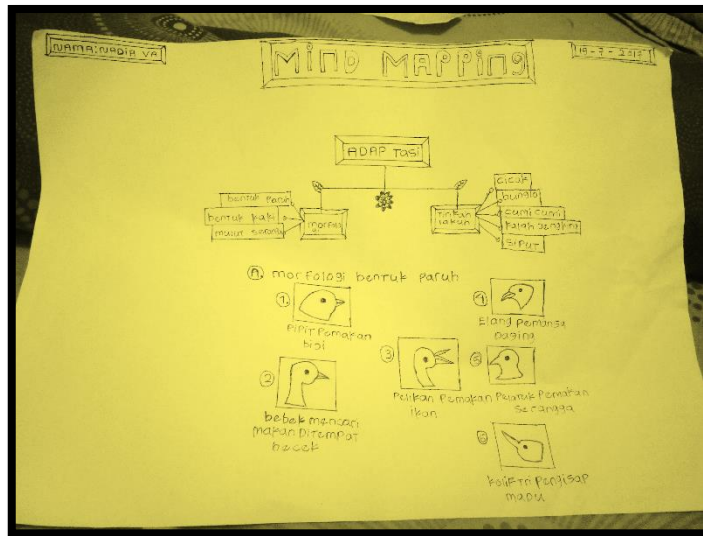 NAMA: NADIA VA
MIND MAPPING
ADAPTasi
bentuk Paruh
bentuk kaki
mulut serangga
morfologi
cicak
bunglo
cumi cumi
kalah jengking
SIPUT
A. morfologi bentuk paruh
1.
PIPIT Pemakan
biji
2
bebek mencari
makan DiTempat
becek
3
Pelikan Pemakan
ikan
4
Elang Pemangsa
Daging
5
Pelatuk Pemakan
Serangga
6
KoliFTri Pengisap
maDu